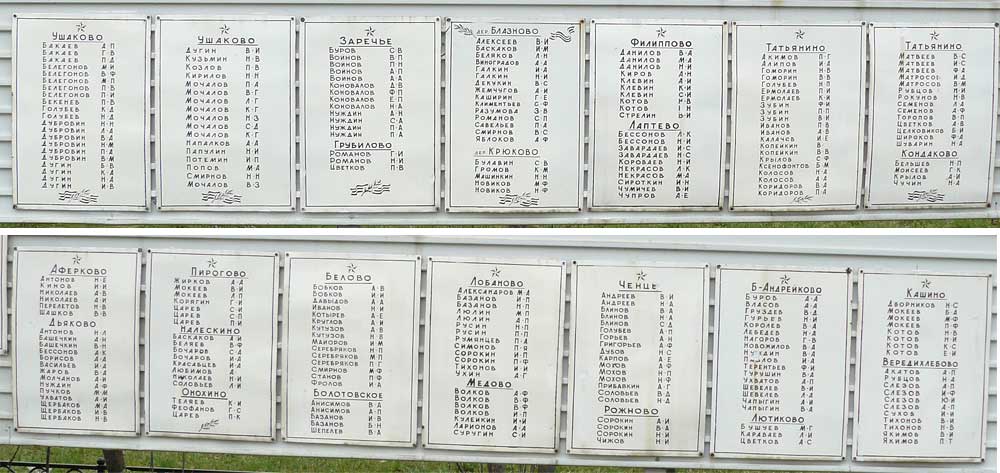 УШАКОВО
БАКАЕВ А·П
БАКАЕВ Г·В
БАКАЕВ П·Д
БЕЛЕГОНОВ М·И
БЕЛЕГОНОВ В·Ф
БЕЛЕГОНОВ М·П
БЕЛЕГОНОВ П·В
БЕЛЕГОНОВ П·И
БЕКЕНЕВ П·В
ГОЛУБЕВ К·Д
ГОЛУБЕВ Н·А
ДУБРОВИН Н·Н
ДУБРОВИН Л·А
ДУБРОВИН В·А
ДУБРОВИН Д·М
ДУБРОВИН П·А
ДУБРОВИН В·М
ДУГИН Б·В
ДУГИН К·А
ДУГИН Н·А
ДУГИН И·В
УШАКОВО
ДУГИН В·И
КУЗЬМИН Н·В
КОЗЛОВ П·В
КИРИЛОВ Н·Н
МОЧАЛОВ П·А
МОЧАЛОВ В·Г
МОЧАЛОВ Л·Г
МОЧАЛОВ К·Г
МОЧАЛОВ Н·З
МОЧАЛОВ С·Д
МОЧАЛОВ К·Г
ПАПАЛКОВ А·А
ПАПУЛИН Н·И
ПОТЕМИН И·П
ПОПОВ М·А
СМИРНОВ Н·Н
МОЧАЛОВ В·З
ЗАРЕЧЬЕ
БУРОВ С·В
ВОИНОВ В·П
ВОИНОВ П·Н
ВОИНОВ А·П
ВОИНОВ А·А
КОНОВАЛОВ Д·В
КОНОВАЛОВ Ф·П
КОНОВАЛОВ Е·П
КОНОВАЛОВ Н·А
НУЖДИН С·А
НУЖДИН П·И
НУЖДИН П·А
ГРУБИЛОВО
РОМАНОВ Г·И
РОМАНОВ Н·И
ЦВЕТКОВ П·В
ДЕР. БЛАЗНОВО
АЛЕКСЕЕВ В·И
БАСКАКОВ И·М
БЕЛЯКОВ А·Н
ВИНОГРАДОВ А·А
ГАЛКИН И·А
ГАЛКИН Н·И
ДЕКУКИН В·С
ЖЕМЧУГОВ А·И
КАШИРИН Г·Е
КЛИМЕНТЬЕВ С·Ф
РАЗУМОВА З·В
РОМАНОВ С·П
САВЕЛЬЕВ П·А
СМИРНОВ В·С
ЯБЛОКОВ А·Ф
ДЕР. КРЮКОВО
БУЛАВИН С·В
ГРОМОВ К·М
МАШИНКИН Н·Н
НОВИКОВ М·Ф
НОВИКОВ Н·Ф
ФИЛИППОВО
ДАНИЛОВ В·А
ДАНИЛОВ М·А
ДАНИЛОВ Н·И
КИРОВ А·Н
КЛЕВИН А·И
КЛЕВИН К·И
КЛЕВИН С·И
КОТОВ Р·В
КОТОВ Г·Н
СТРЕЛИН В·И
ЛАПТЕВО
БЕССОНОВ Л·К
БЕССОНОВ Н·И
ЗАВАРДАЕВ И·С
ЗАВАРДАЕВ Н·С
КОРОВКИН Н·А
НЕКРАСОВ Л·К
НЕКРАСОВ М·А
СИРОТКИН И·Н
ЧУМИЧЕВ В·И
ЧУПРОВ А·Е
ТАТЬЯНИНО
АКИМОВ П·Г
АЛИНОВ И·А
ГОМОРИН Н·В
ГОМОРИН В·В
ГОЛУБЕВ П·Д
ЕРМОЛАЕВ П·И
ЕРМОЛАЕВ К·И
ЗУБИН Ф·И
ЗУБИН П·П
ЗУБИН В·И
ИВАНОВ П·А
ИВАНОВ А·В
КАЛАЧЕВ И·Е
КОПЕЙКИН В·В
КРЫЛОВ С·Ф
КСЕНОФОНТОВ Б·М
КОЛОСОВ Н·А
КОЛОСОВ Н·А
КОРИДОРОВ В·А
КОРИДОРОВ П·А
ТАТЬЯНИНО
МАТВЕЕВ В·С
МАТВЕЕВ И·С
МАТВЕЕВ Ф·А
МАТВЕЕВ С·И
МАТРОСОВ В·М
РУБЦОВ Н·И
РОКУНОВ Н·В
СЕМЕНОВ Л·А
СЕМЕНОВ А·Ф
ТОРОПОВ В·П
ЦВЕТКОВ А·В
ЩЕЛКОВИКОВ Б·И
ШИРОКОВ Ф·А
ШУВАРИН Н·А
КОНДАКОВО
БЕЛЬШЕВ Н·П
МОИСЕЕВ Г·К
КРЫЛОВ А·И
ЧУЧИН Н·А
АФЕРКОВО
АНТОНОВ Н·Е
КИНОВ Н·И
НИКОЛАЕВ А·В
НИКОЛАЕВ А·И
ПЕРЕЛЕТОВ Н·В
ШАШКОВ В·В
ДЬЯКОВО
АНТОНОВ Н·Л
БАШЕЧКИН А·Н
БАШЕЧКИН В·Н
БЕССОНОВ А·К
БОРИСОВ А·А
ВАСИЛЬЕВ И·А
ЖАРОВ В·А
МОЛЧАНОВ А·И
НУЖДИН А·Ф
ПУЧКОВ М·М
УХВАТОВ А·И
ЩЕРБАКОВ М·А
ЩЕРБАКОВ И·В
ЩЕРБАКОВ Н·В
ПИРОГОВО
ЖИРКОВ А·А
МОКЕЕВ В·И
МОКЕЕВ Л·П
КОРЯГИН Г·И
ЦАРЕВ С·И
ЦАРЕВ С·П
ЦАРЕВ П·И
ПАЛЕСКИНО
БАСКАКОВ А·И
БЕЛЯЕВ В·Ф
БОЧАРОВ С·А
БОЧАРОВ И·А
КРАСАВЦЕВ И·А
ЛЮБИМОВ А·П
НИКОЛАЕВ Н·И
СОЛОВЬЕВ Л·И
ОНОХИНО
ТЕЛЯЕВ К·И
ФЕОФАНОВ Г·С
ЦАРЕВ П·К
БЕЛОВО
БОБКОВ А·В
БОБКОВ И·И
ДАВЫДОВ А·А
ИВАНОВ Н·И
КОТЫРЕВ А·Е
КРУГЛОВ А·И
КУТУЗОВ А·В
КУТУЗОВ Н·В
МАЙОРОВ И·М
СЕРЕБРЯКОВ Н·П
СЕРЕБРЯКОВ М·П
СЕРЕБРЯКОВ П·Г
СМИРНОВ М·Ф
СТАНОВ П·Ф
ФРОЛОВ И·А
БОЛОТОВСКОЕ
АНИСИМОВ В·А
АНИСИМОВ А·П
БАЗАНОВ И·В
БАЗАНОВ Б·Н
ШЕПЕЛЕВ В·А
ЛОБАНОВО
АЛЕКСАНДРОВ М·А
БАЗАНОВ И·П
БАЗАНОВ Н·П
ЛЮЛИН М·П
ЛЮЛИН А·П
РУСИН П·П
РУСИН Н·П
РУМЯНЦЕВ П·А
СИМОНОВ П·Я
СОРОКИН И·П
СОРОКИН П·Ф
ТИХОНОВ И·И
УХИН А·Г
МЕДОВО
ВОЛКОВ А·Ф
ВОЛКОВ В·Ф
ВОЛКОВ В·Ф
ВОЛКОВ И·П
КУЛЕЙКИН И·И
ЛАРИОНОВ А·А
СУРУГИН С·И
ЧЕНЦЫ
АНДРЕЕВ В·И
АНДРЕЕВ Н·А
БЛИНОВ В·А
БЛИНОВ В·А
БЛИНОВ С·Д
ГОЛУБЕВ А·И
ГОРЬЕВ А·Н
ГРИГОРЬЕВ А·Ф
ДУБОВ Н·С
КАРПОВ А·Е
МОХОВ А·Ф
МОХОВ Н·П
МОХОВ Н·Ф
ПРИБАВКИН А·Г
СОЛОВЬЕВ А·С
СОЛОВЬЕВ Н·Д
РОЖНОВО
СОРОКИН А·И
СОРОКИН В·И
СОРОКИН Н·И
ЧИЖОВ Н·И
Б-АНДРЕЙКОВО
БУРОВ А·А
ВЛАСОВ А·А
ГРУЗДЕВ В·А
ГУРЬЕВ Н·И
КОРОЛЕВ В·А
ЛЕБЕДЕВ Н·А
НАГОРОВ В·Г
НОВОЖИЛОВ В·Д
НУЖДИН В·А
ПАВЛОВ И·А
ТЕРЕНТЬЕВ Ф·И
ТУРУШИН В·А
УХВАТОВ А·П
ШЕВЕЛЕВ В·И
ШЕВЕЛЕВ Л·А
ЧАПЫГИН А·А
ЧАПЫГИН В·А
ЛЮТИКОВО
БУШУЕВ М·Г
КАРАВАЕВ Л·И
ЦВЕТКОВ А·С
КАШИНО
ДВОРНИКОВ Н·С
МОКЕЕВ Б·Д
МОКЕЕВ М·Ф
МОКЕЕВ П·Ф
КОТОВ Н·К
КОТОВ И·И
КОТОВ К·С
КОТОВ Е·И
ВЕРЕДИХЛЕБОВО
АКАТОВ А·П
РУБЦОВ Н·А
СЛЕЗОВ А·П
СЛЕЗОВ И·Ф
СЛЕЗОВ Ю·И
СЛЕЗОВ А·П
СУХОВ И·И
ТИХОНОВ И·В
ТИХОНОВ Н·В
ЯКИМОВ В·И
ЯКИМОВ П·Т